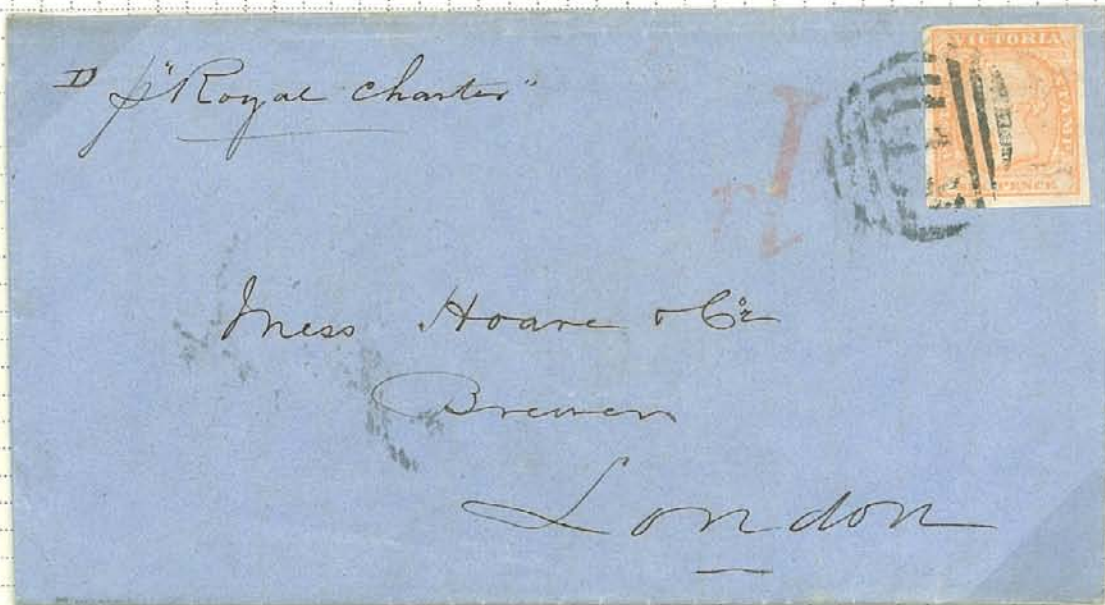 II p "Royal Charter"
VICTORIA
STAMP
PENCE
1d
Mess Hoare & Co
Brewers
London